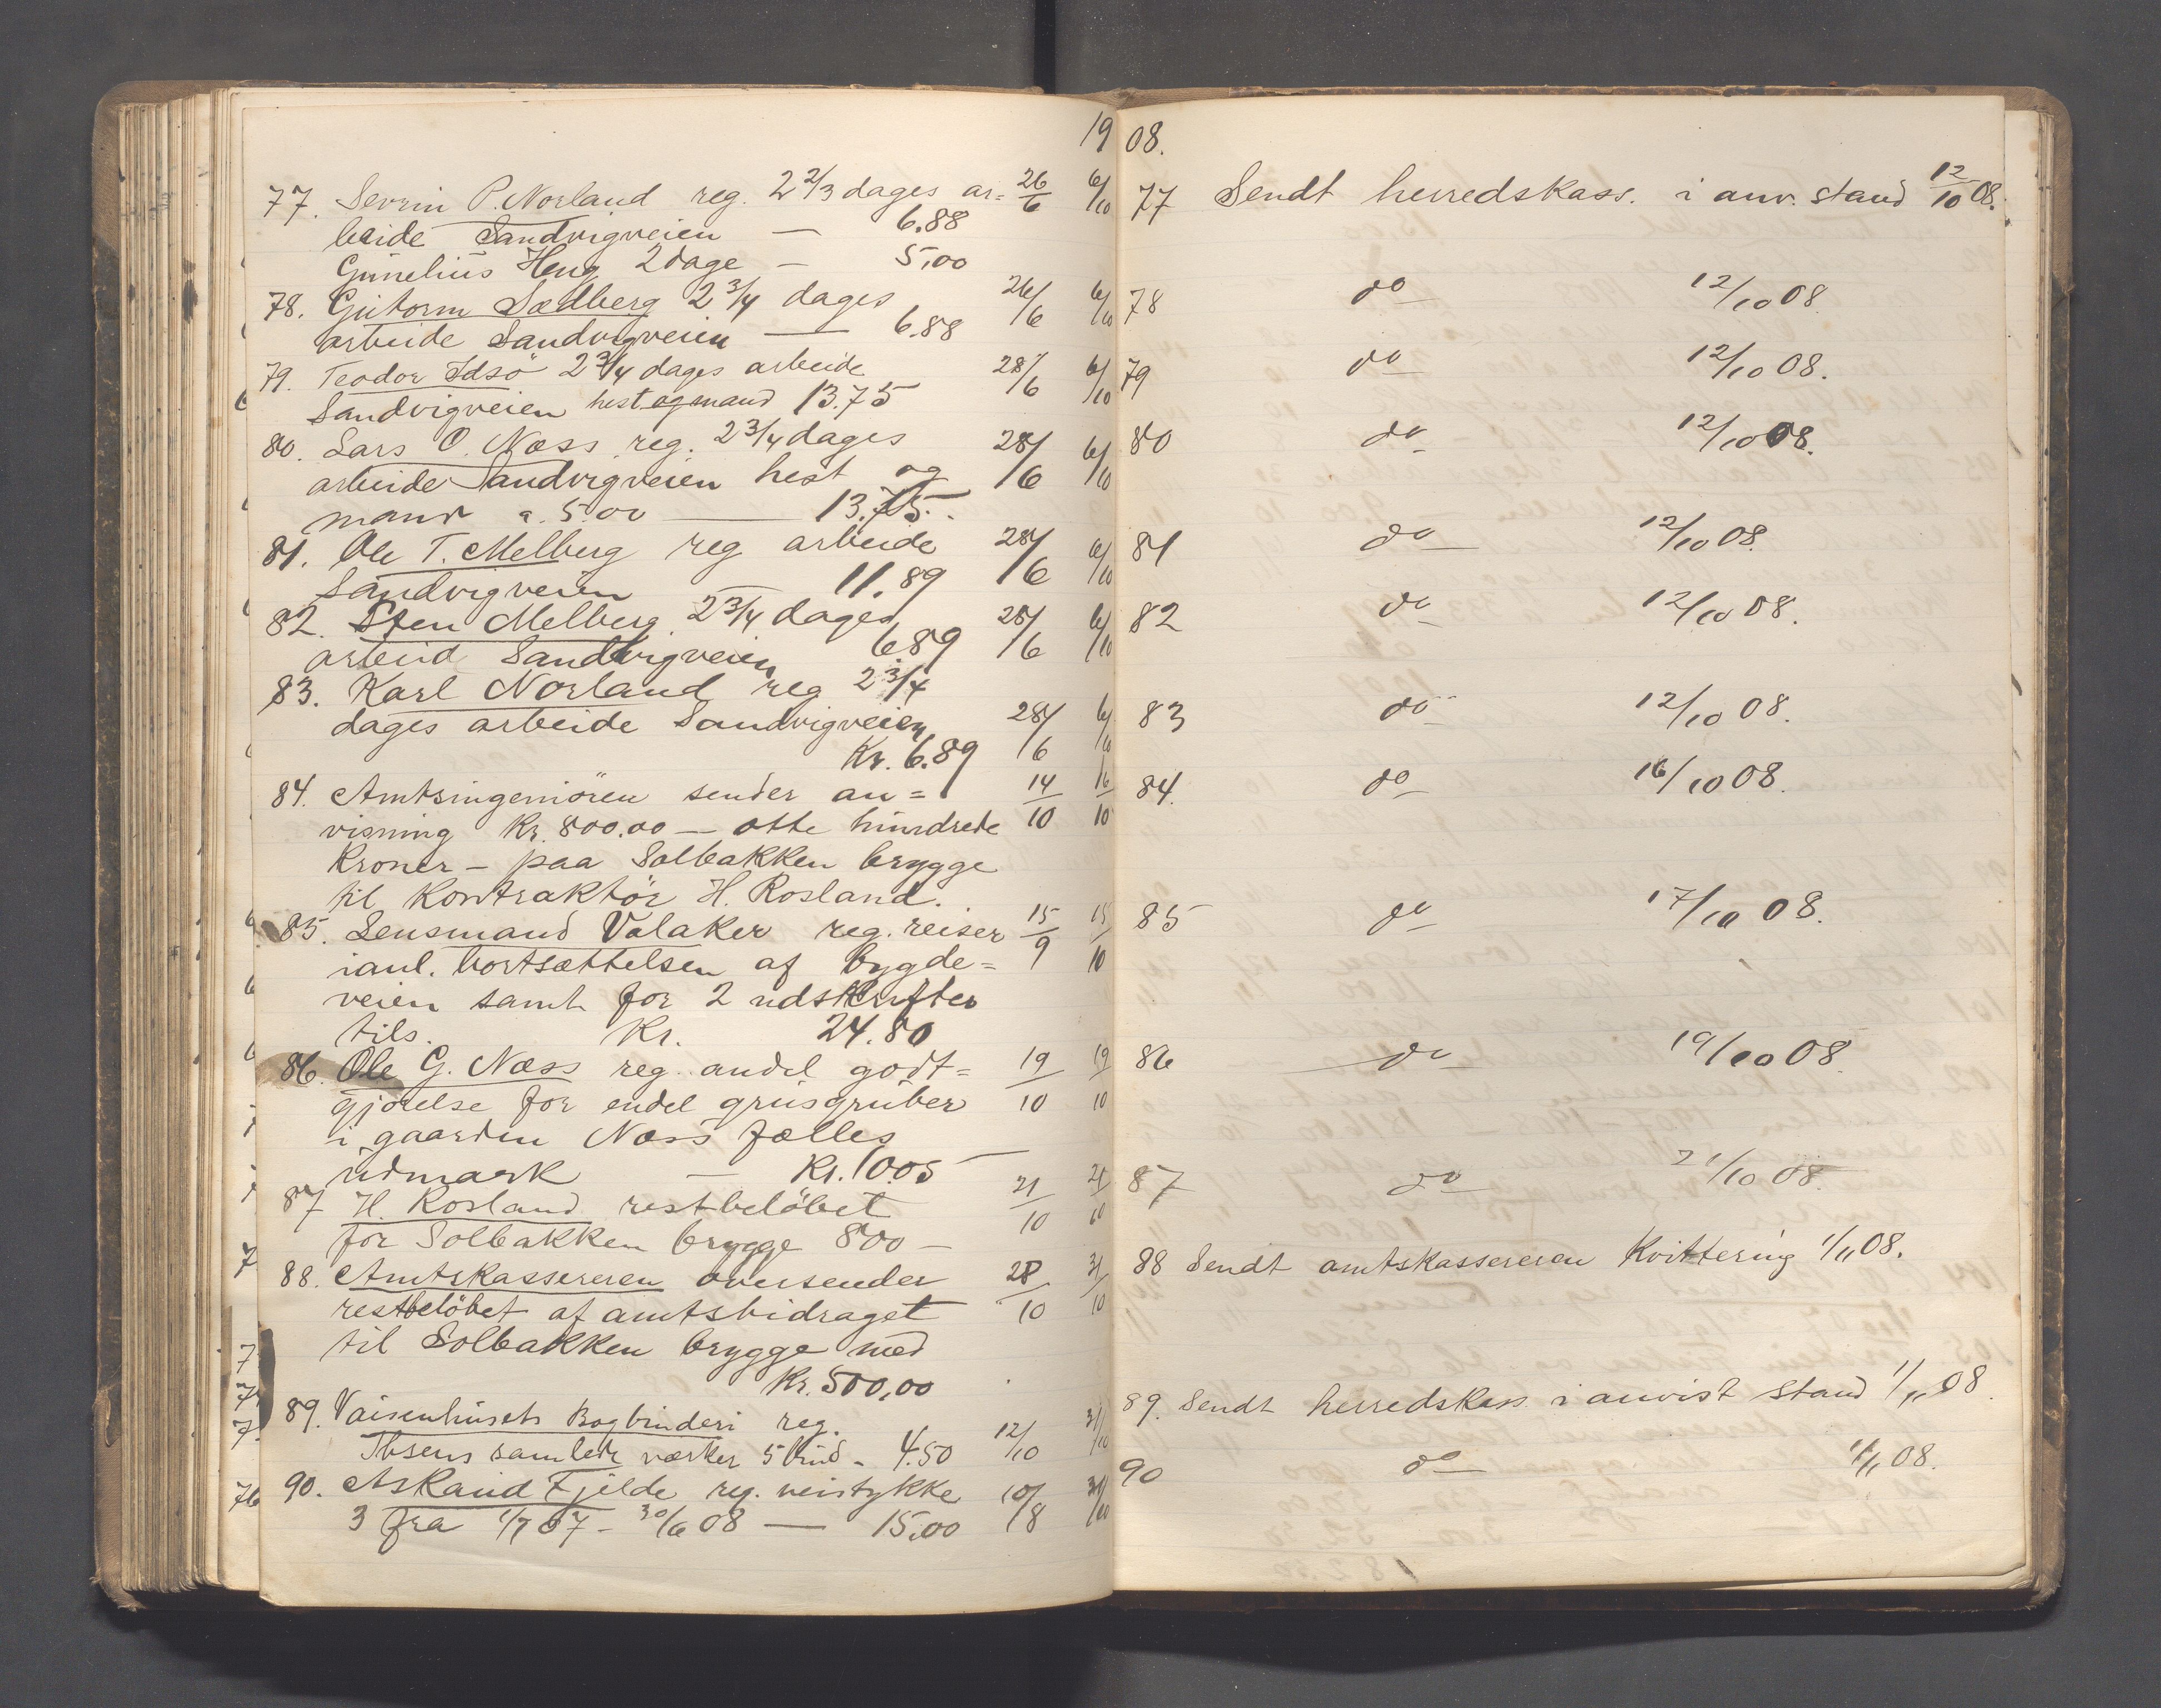 19 08.
77. Sevrin P. Norland reg. 2 2/3 dages ar= 26/6 6/10
beide Sandvigveien — 6.88
Gunelius Heng 2 dage — 5,00
78. Gutorm Sædberg 2 3/4 dages 26/6 6/10
arbeide Sandvigveien — 6.88
79. Teodor Idsö 2 3/4 dages arbeide 28/6 6/10
Sandvigveien hest og mand 13.75
80. Lars O. Næss reg. 2 3/4 dages 28/6 6/10
arbeide Sandvigveien hest og
mand a. 5.00 — 13.75.
81. Ole T. Melberg reg arbeide 28/6 6/10
Sandvigveien — 11.89
82. Sten Melberg 2 3/4 dages 28/6 6/10
arbeid Sandvigveien 6.89
83. Karl Norland reg 2 3/4
dages arbeide Sandvigveien 28/6 6/10
Kr. 6.89
84. Amtsingeniören sender an= 14/10 16/10
visning Kr. 800.00 — otte hundrede
Kroner — paa Solbakken brygge
til Kontraktör H. Rosland.
85. Lensmand Valaker reg. reiser 15/9 15/10
ianl. bortsættelsen af bygde=
veien samt for 2 udskrifter
tils. Kr. 24.80
86. Ole G. Næss reg. andel godt= 19/10 19/10
gjörelse for endel grusgruber
i gaarden Næss fælles
udmark — Kr. 10.05
87 H. Rosland restbelöbet 21/10 21/10
for Solbakken brygge 800 —
88. Amtskassereren oversender 28/10 31/10
restbelöbet af amtsbidraget
til Solbakken brygge med
Kr. 500,00
89. Vaisenhusets Bogbinderi reg.
Ibsens samlede værker 5 bind - 4.50 12/10 31/10
90. Askaud Fjelde reg. veistykke 10/8 31/10
3 fra 1/7 07 - 30/6 08 — 15.00
77 Sendt herredskass. i anv. stand 12/10 08.
78 do 12/10 08.
79 do 12/10 08.
80 do 12/10 08.
81 do 12/10 08.
82 do 12/10 08.
83 do 12/10 08.
84. do 16/10 08.
85 do 17/10 08.
86 do 19/10 08.
87 do 21/10 08.
88 Sendt amtskassereren Kvittering 1/11 08.
89. Sendt herredskass. i anvist stand 1/11 08.
90 do 1/11 08.